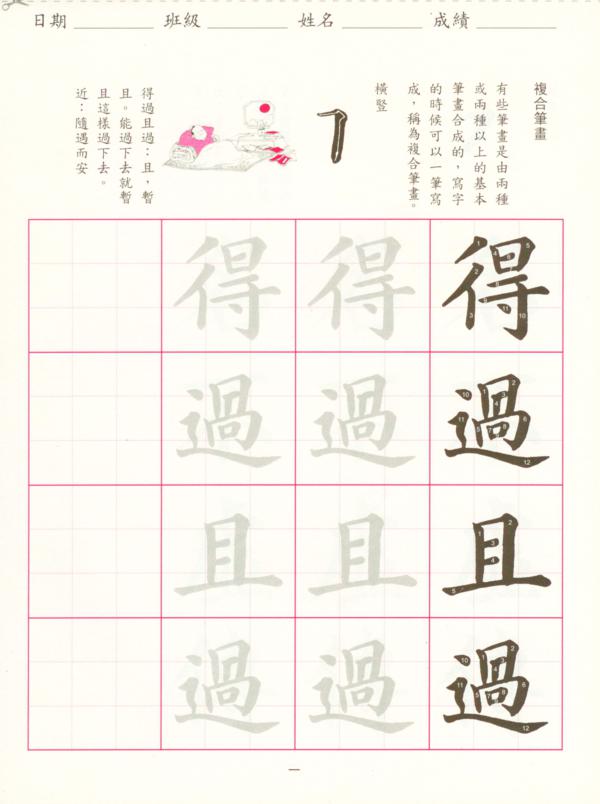 日期 班級 姓名 成績
複合筆畫
有些筆畫是由兩種
或兩種以上的基本
筆畫合成的，寫字
的時候可以一筆寫
成，稱為複合筆畫。
橫豎
得過且過：且，暫
且。能過下去就暫
且這樣過下去。
近：隨遇而安
得 得 得
過 過 過
且 且 且
過 過 過
一